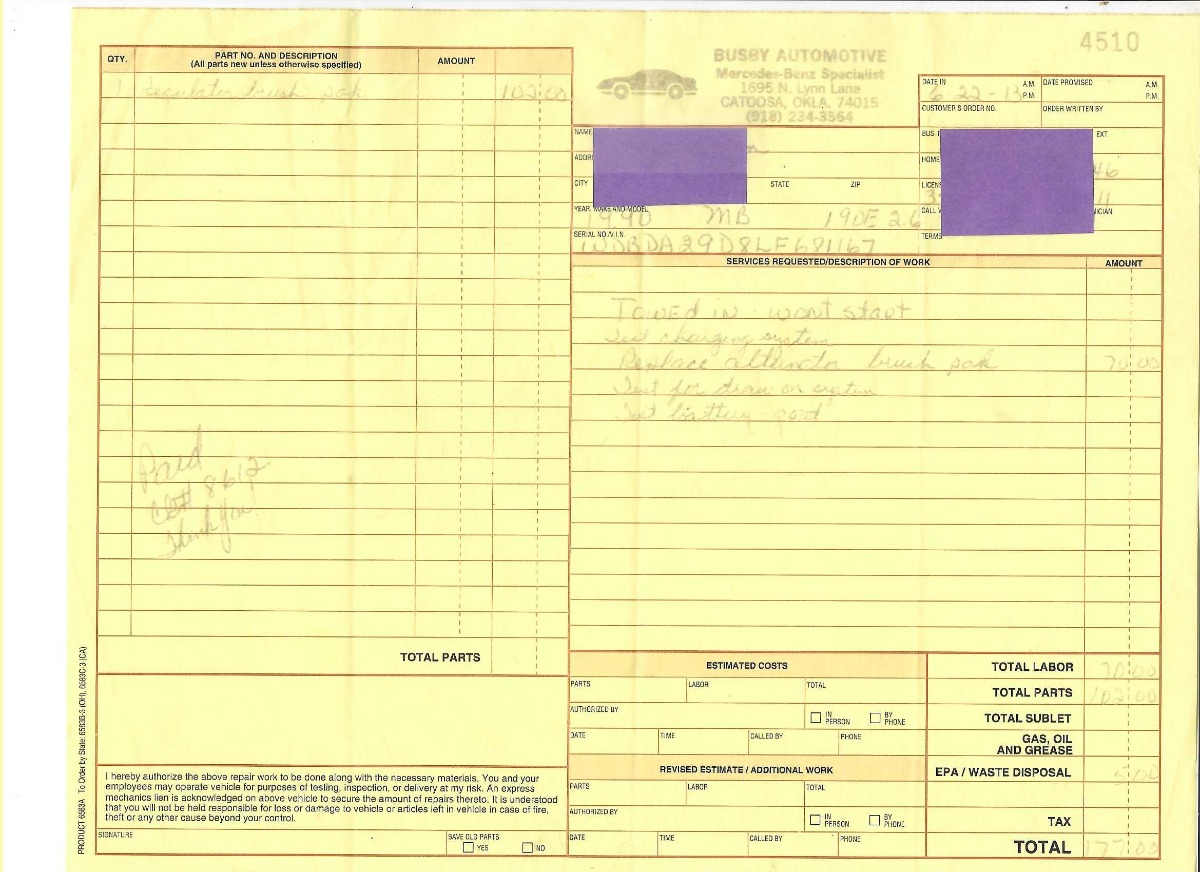 4510
BUSBY AUTOMOTIVE
Mercedes-Benz Specialist
1695 N. Lynn Lane
CATOOSA, OKLA. 74015
(918) 234-3564
QTY.
PART NO. AND DESCRIPTION
(All parts new unless otherwise specified)
AMOUNT
1 Regulator brush pak 102.00
Paid
8612
Thank you!
TOTAL PARTS
I hereby authorize the above repair work to be done along with the necessary materials. You and your
employees may operate vehicle for purposes of testing, inspection, or delivery at my risk. An express
mechanics lien is acknowledged on above vehicle to secure the amount of repairs thereto. It is understood
that you will not be held responsible for loss or damage to vehicle or articles left in vehicle in case of fire,
theft or any other cause beyond your control.
SIGNATURE
SAVE OLD PARTS
YES NO
PRODUCT 6583A To Order by State: 6583B-3 (OH), 6583C-3 (CA)
DATE IN A.M. P.M.
6-22-13
DATE PROMISED A.M. P.M.
CUSTOMER'S ORDER NO.
ORDER WRITTEN BY
NAME
ADDR
CITY STATE ZIP
BUS. EXT.
HOME
46
LICEN
11
CALL
ICIAN
TERMS
YEAR, MAKE AND MODEL
1990 MB 190E 2.6
SERIAL NO./V.I.N.
WDBDA29D8LF681167
SERVICES REQUESTED/DESCRIPTION OF WORK
AMOUNT
Towed in - wont start
Test charging system
Replace alternator brush pak 70.00
Test for draw on system
Test battery - good
ESTIMATED COSTS
PARTS LABOR TOTAL
AUTHORIZED BY
IN PERSON BY PHONE
DATE TIME CALLED BY PHONE
REVISED ESTIMATE / ADDITIONAL WORK
PARTS LABOR TOTAL
AUTHORIZED BY
IN PERSON BY PHONE
DATE TIME CALLED BY PHONE
TOTAL LABOR 70.00
TOTAL PARTS 102.00
TOTAL SUBLET
GAS, OIL
AND GREASE
EPA / WASTE DISPOSAL 5.00
TAX
TOTAL 177.00